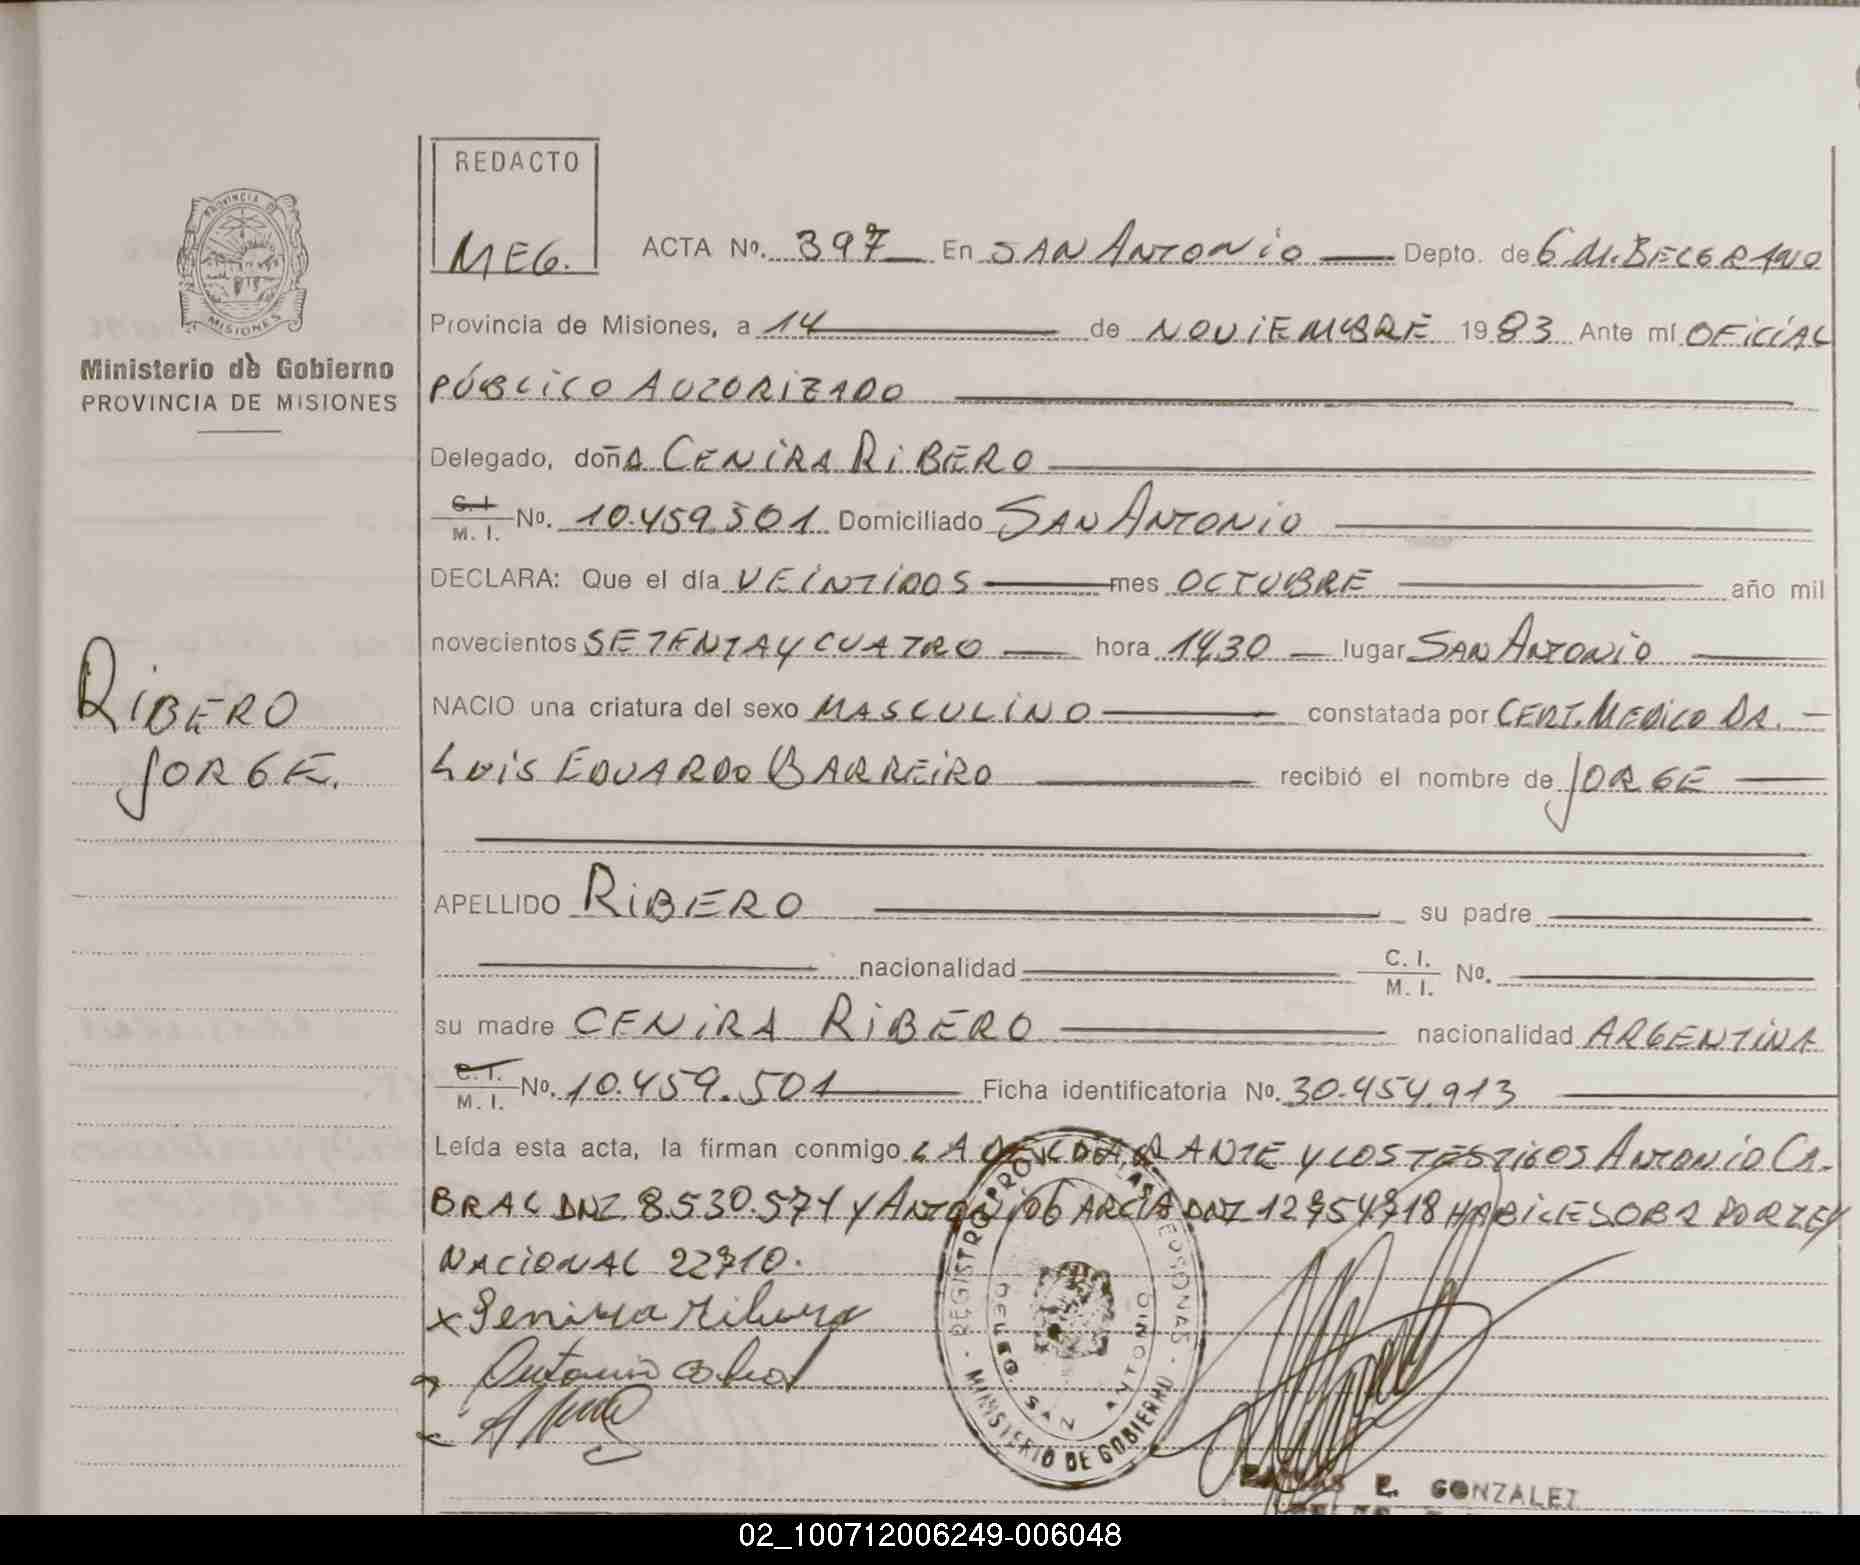 REDACTO
MEG.
ACTA Nº. 397 En SAN ANTONIO Depto. de G.M. BELGRANO
Provincia de Misiones, a 14 de NOVIEMBRE 1983 Ante mí OFICIAL
PÚBLICO AUTORIZADO
Delegado, doña CENIRA RIBERO
C.I. M.I. Nº. 10.459.501 Domiciliado SAN ANTONIO
DECLARA: Que el día VEINTIDOS mes OCTUBRE año mil
novecientos SETENTA Y CUATRO hora 14,30 lugar SAN ANTONIO
NACIO una criatura del sexo MASCULINO constatada por CERT. MEDICO DR.
LUIS EDUARDO BARREIRO recibió el nombre de JORGE
APELLIDO RIBERO su padre
nacionalidad C. I. M. I. Nº.
su madre CENIRA RIBERO nacionalidad ARGENTINA
C.I. M.I. Nº. 10.459.501 Ficha identificatoria Nº. 30.454.913
Leída esta acta, la firman conmigo LA DECLARANTE Y LOS TESTIGOS ANTONIO CA-
BRAL DNI 8.530.574 Y ANTONIO GARCIA DNI 12754718 HABILES OBR POR LEY
NACIONAL 22710.
x Senirra Ribero
Antonio Cabral
Ministerio de Gobierno
PROVINCIA DE MISIONES
RIBERO
JORGE.
PROVINCIA DE
MISIONES
REGISTRO PROV. DE LAS PERSONAS
MINISTERIO DE GOBIERNO
DELEG. SAN ANTONIO
E. GONZALEZ
02_100712006249-006048